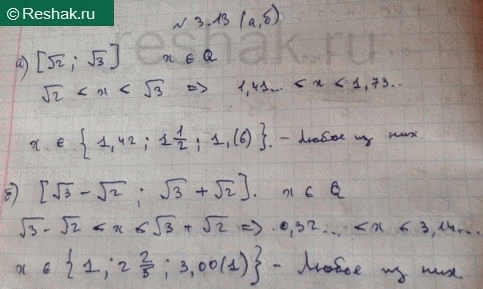 Reshak.ru
reshak.ru
N 3.13 (а,б)
а) [√2; √3] x ∈ Q
√2 < x < √3 => 1,41... < x < 1,73..
x ∈ {1,42; 1 1/2; 1,(6)}. - Любое из них.
б) [√3 - √2; √3 + √2]. x ∈ Q
√3 - √2 < x < √3 + √2 => 0,32... < x < 3,14...
x ∈ {1; 2 2/3; 3,00(1)} - Любое из них.